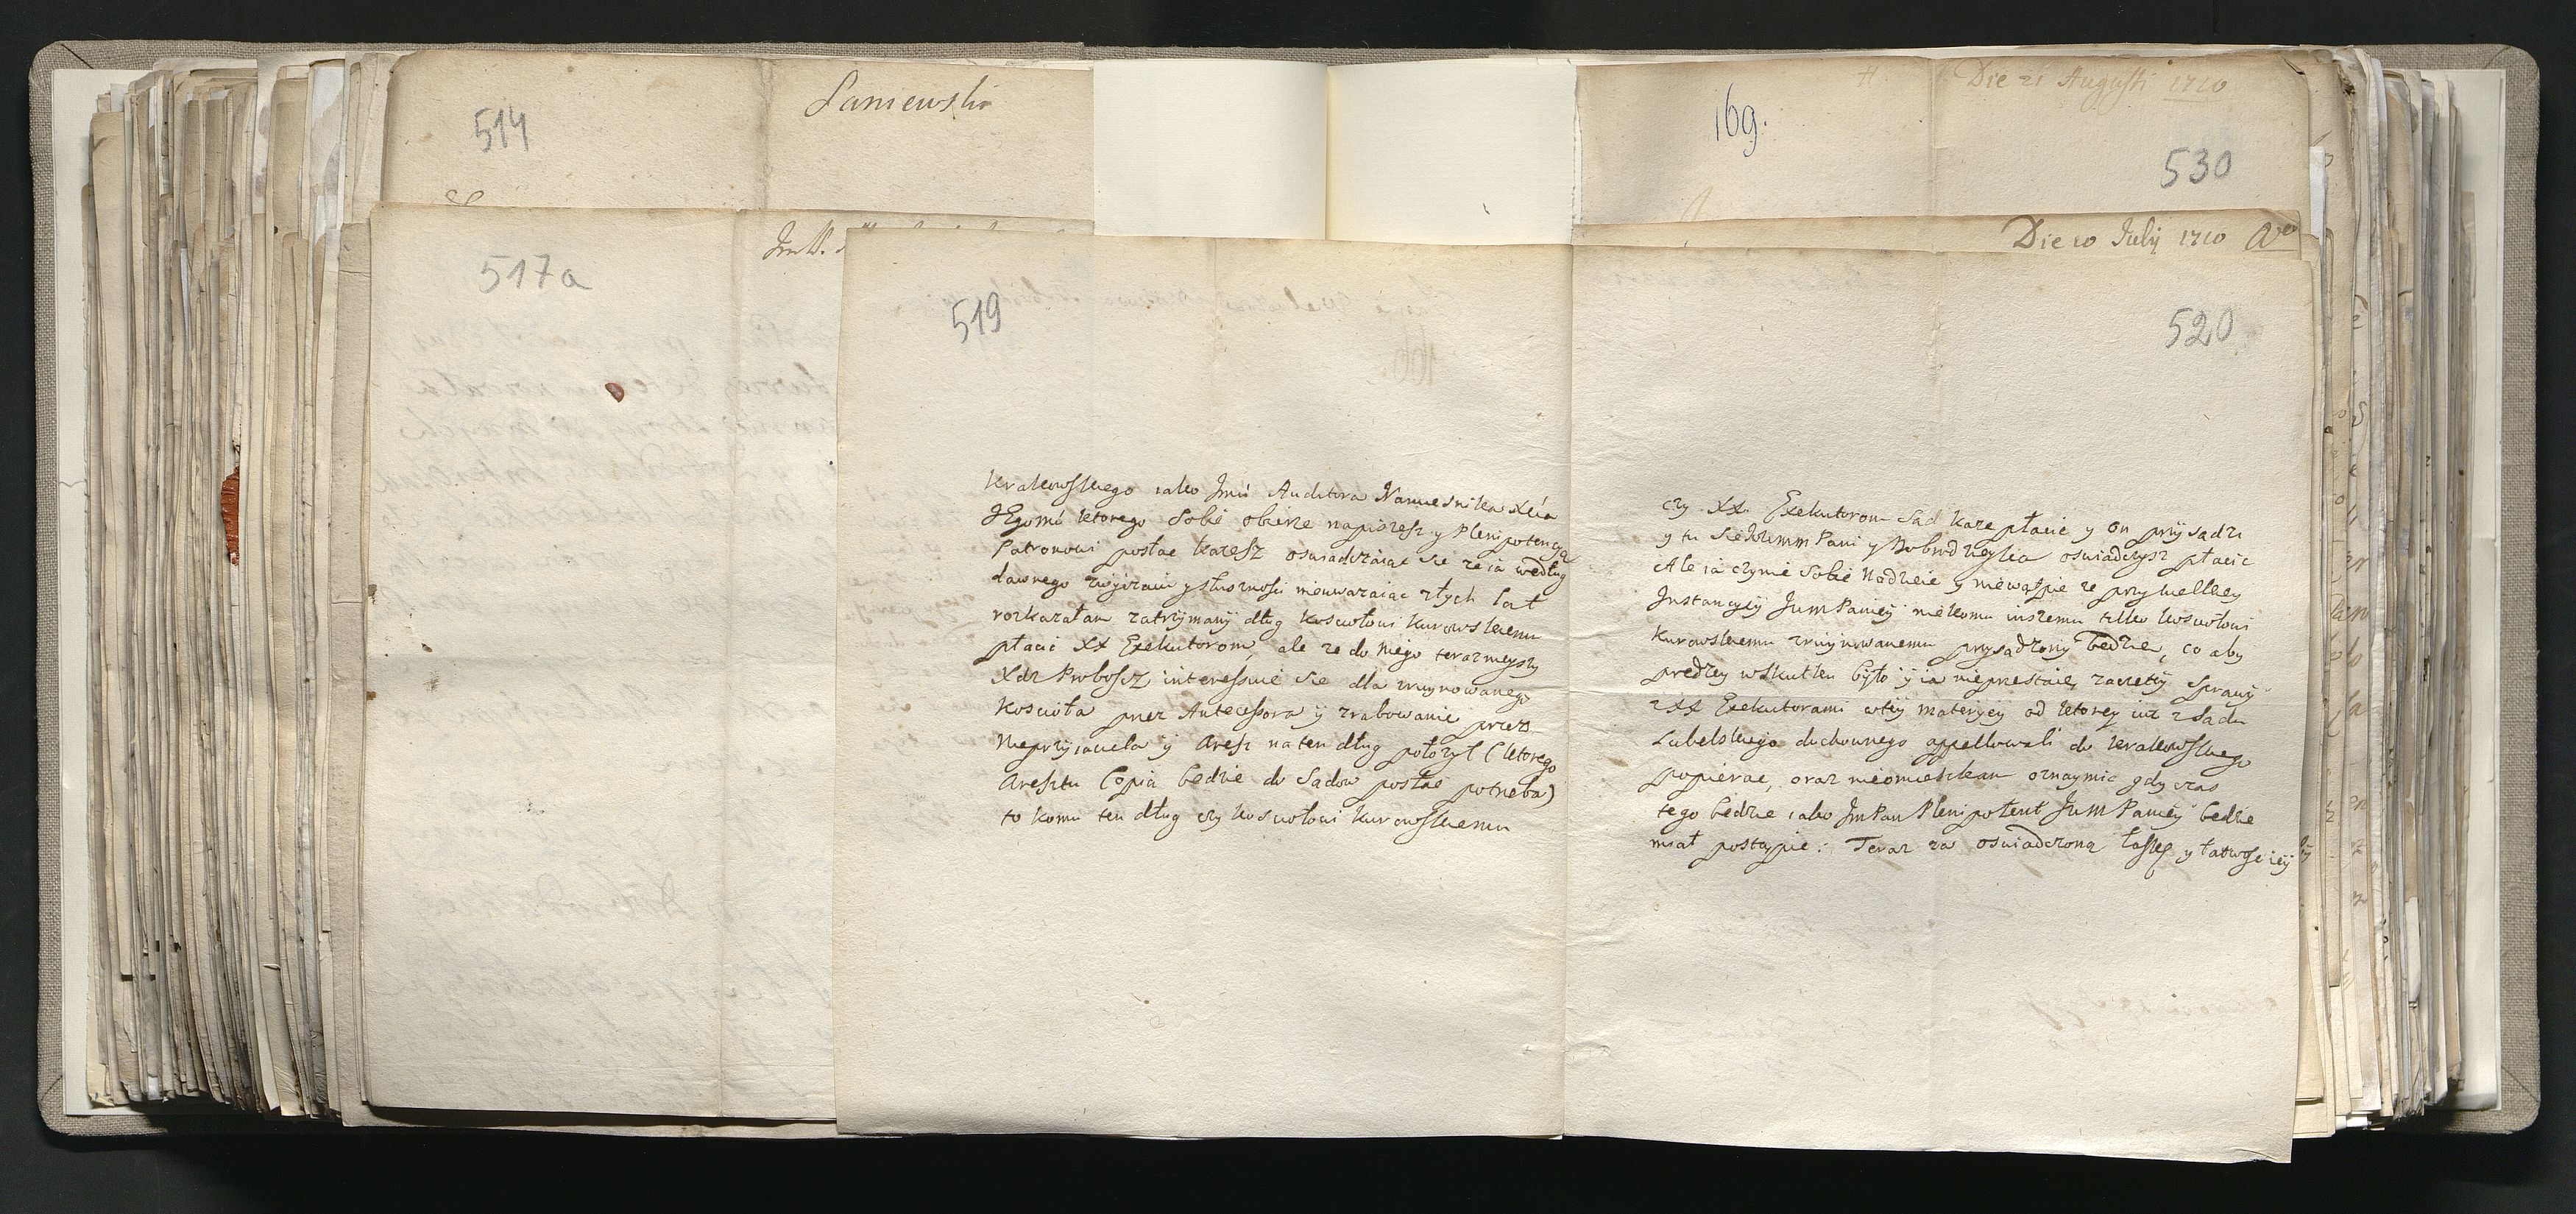 514
Saniewski
517a
Im P.
169.
Die 21 Augusti 1710
530
Die 10 July 1710
519
520
krakowskiego iako Jmci Auditora Namiesnika Xcia
JEgomci ktorego Sobie obierze napiszesz y Plenipotencyą
Patronowi posłac każesz oswiadczaiąc się że ia według
dawnego zwyczaiu y słusznosci nieuwazaiąc złych lat
rozkazałam zatrzymany dług koscıołowi kurowskiemu
płacic XX Exekutorom, ale ze do niego terazneyszy
Xdz Proboszcz interessuie się dla zruynowanego
koscioła przez Antecessora y zrabowanie przez
nieprzyiaciela y areszt na ten dług położył (ktorego
aresztu Copia będzie do Sądow posłac potrzeba)
to komu ten dług czy koscıołowi kurowskiemu
czy XX. Exekutorom Sąd każe płacic y on przysądzi
y tu Pani y Dobrodzieyka oswiadczysz płacic
Ale ia czynie Sobie Nadzieie y niewątpie ze przy wielkiey
Instancyey JeymPaniey nikomu inszemu tylko koscıołowi
kurowskiemu zruynowanemu przysądzony będzie, co aby
prędzey wskutku było y ia nieprzestaie zaczętey Sprawy
z XX Exekutorami wtey materyey od ktorey iuz z Sądu
Lubelskiego duchownego appellowali do krakowskiego
popierac, oraz nieomieszkam oznaymic gdy czas
tego będzie iako JmPan Plenipotent JeymPaniey będzie
miał postąpic: Teraz za oswiadczoną łaskę y łatwosc iey